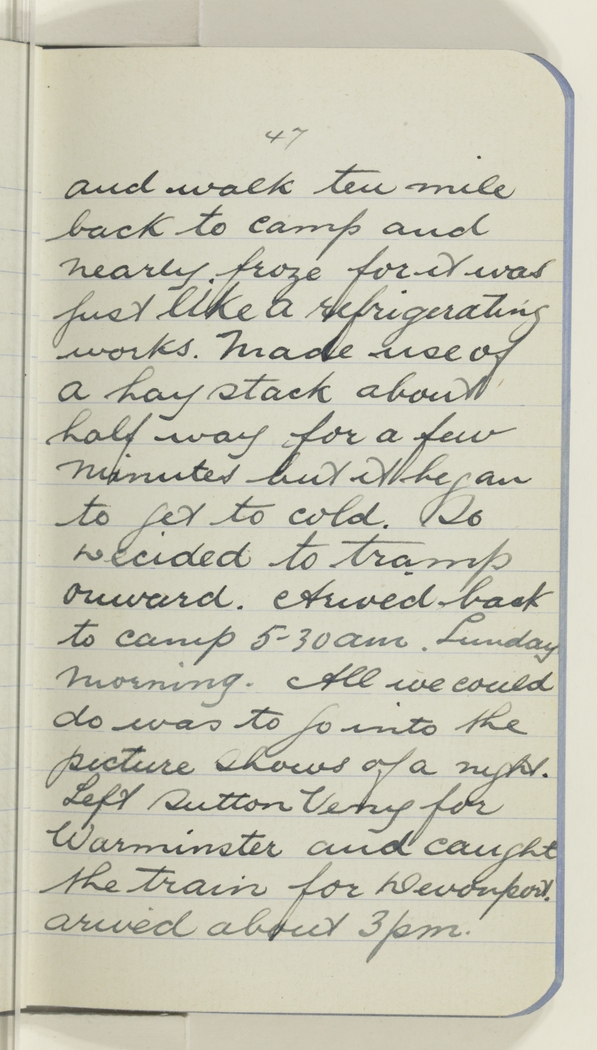 47
and walk ten mile
back to camp and
nearly froze for it was
just like a refrigerating
works. Made use of
a hay stack about
half way for a few
minutes but it began
to get to cold. So
decided to tramp
onward. Arived back
to camp 5-30am. Sunday
morning. All we could
do was to go into the
picture shows of a night.
Left Sutton Veny for
Warminster and caught
the train for Devonport.
arived about 3pm.